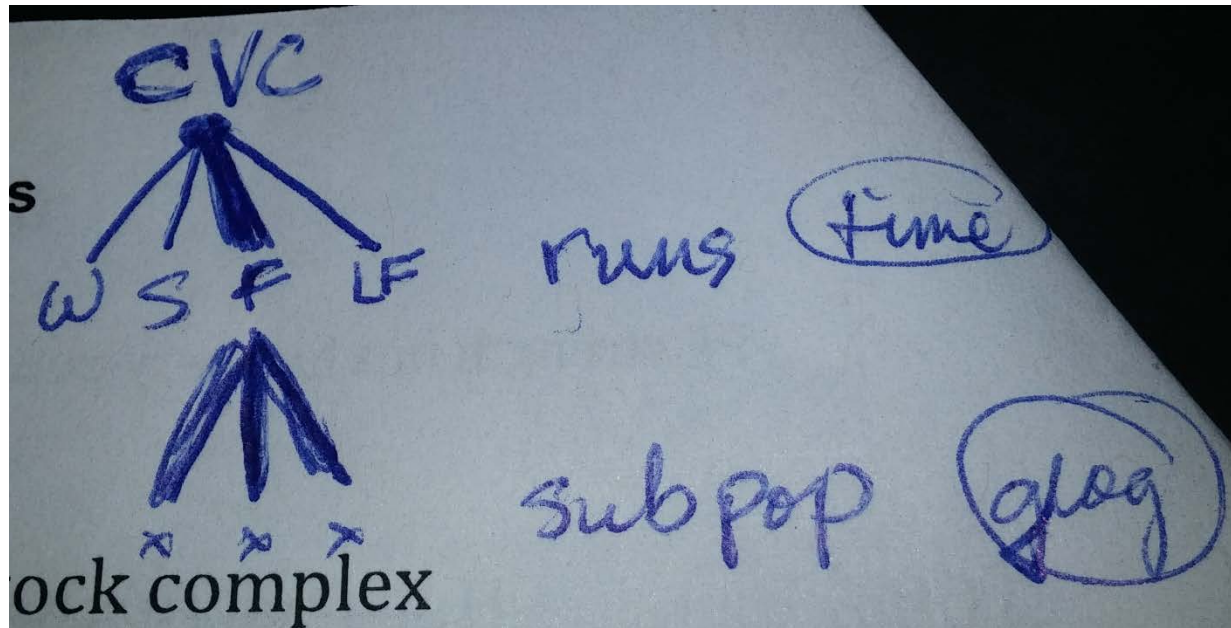 CVC
s
W S F LF runs time
x x x
subpop geog
ock complex